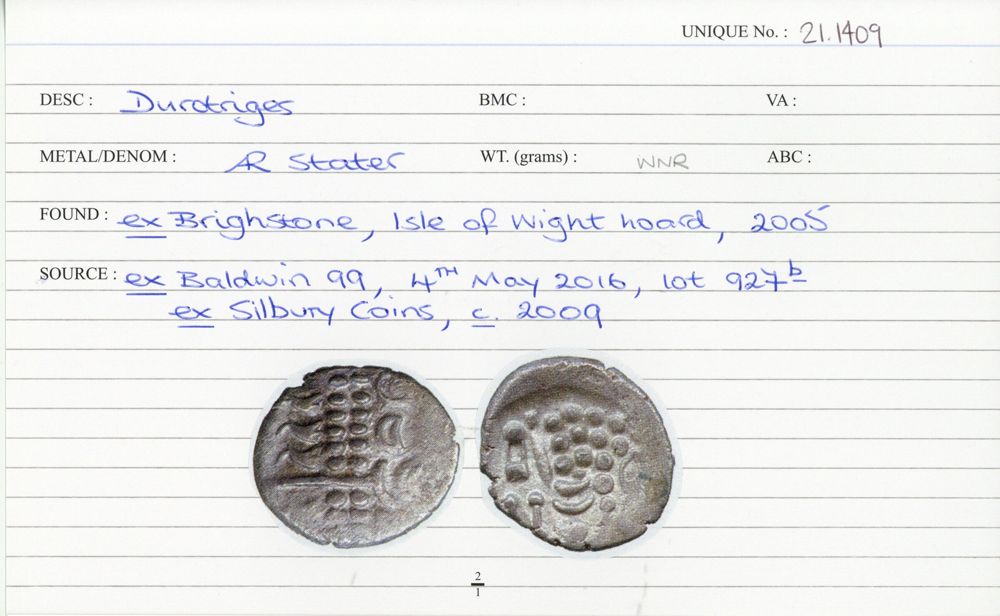 UNIQUE No. : 21.1409
DESC : Durotriges BMC : VA :
METAL/DENOM : AR Stater WT. (grams) : WNR ABC :
FOUND : ex Brighstone, Isle of Wight hoard, 2005
SOURCE : ex Baldwin 99, 4TH May 2016, lot 927b
ex Silbury Coins, c. 2009
2
1